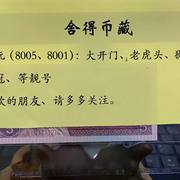 舍得币藏
元（8005、8001）：大开门、老虎头、
冠、等靓号
欢的朋友、请多多关注。